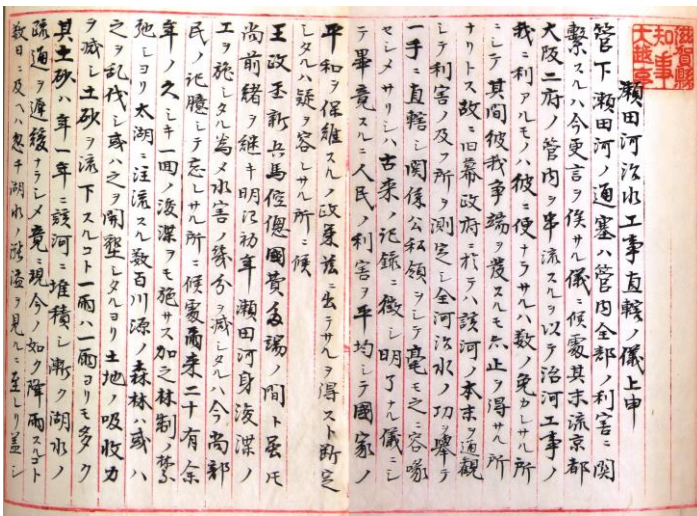 瀬田河治水工事直轄ノ儀上申
滋賀縣
知事
大越亨
管下瀬田河ノ通塞ハ管内全部ノ利害ニ関
繋スルハ今更言ヲ俟サル儀ニ候處其末流京都
大阪二府ノ管内ヲ串流スルヲ以テ治河工事ノ
我ニ利アルモノハ彼ニ便ナラサルハ数ノ免カレサル所
ニシテ其間彼我事端ヲ發スルモ亦止ヲ得サル所
ナリトス故ニ旧幕政府ニ於テハ該河ノ本末ヲ通観
シテ利害ノ及フ所ヲ測定シ全河治水ノ功ヲ挙テ
一手ニ直轄シ関係公私領ヲシテ毫モ之ニ容喙
セシメサリシハ古来ノ記録ニ徴シ明了ナル儀ニシ
テ畢竟スルニ人民ノ利害ヲ平均シテ國家ノ
平和ヲ保維スルノ政策茲ニ出テサルヲ得スト断定
シタルハ疑ヲ容レサル所ニ候
王政維新兵馬倥偬國費多端ノ間ト雖モ
尚前緒ヲ継キ明治初年瀬田河身浚渫ノ
工ヲ施シタル為メ水害ノ幾分ヲ減シタルハ今尚部
民ノ記臆シテ忘レサル所ニ候處爾来二十有余
年ノ久シキ一回ノ浚渫ヲモ施サス加之林制ノ禁
弛シヨリ太湖ニ注流スル数百川源ノ森林ハ或ハ
之ヲ乱伐シ或ハ之ヲ開墾シタルヨリ土地ノ吸收力
ヲ減シ土砂ヲ流下スルコト一雨ハ一雨ヨリモ多ク
其土砂ハ年一年ニ該河ニ堆積シ漸ク湖水ノ
疏通ヲ遅緩ナラシメ竟ニ現今ノ如ク降雨スルコト
数日ニ及ヘハ忽チ湖水ノ漲溢ヲ見ルニ至レリ蓋シ